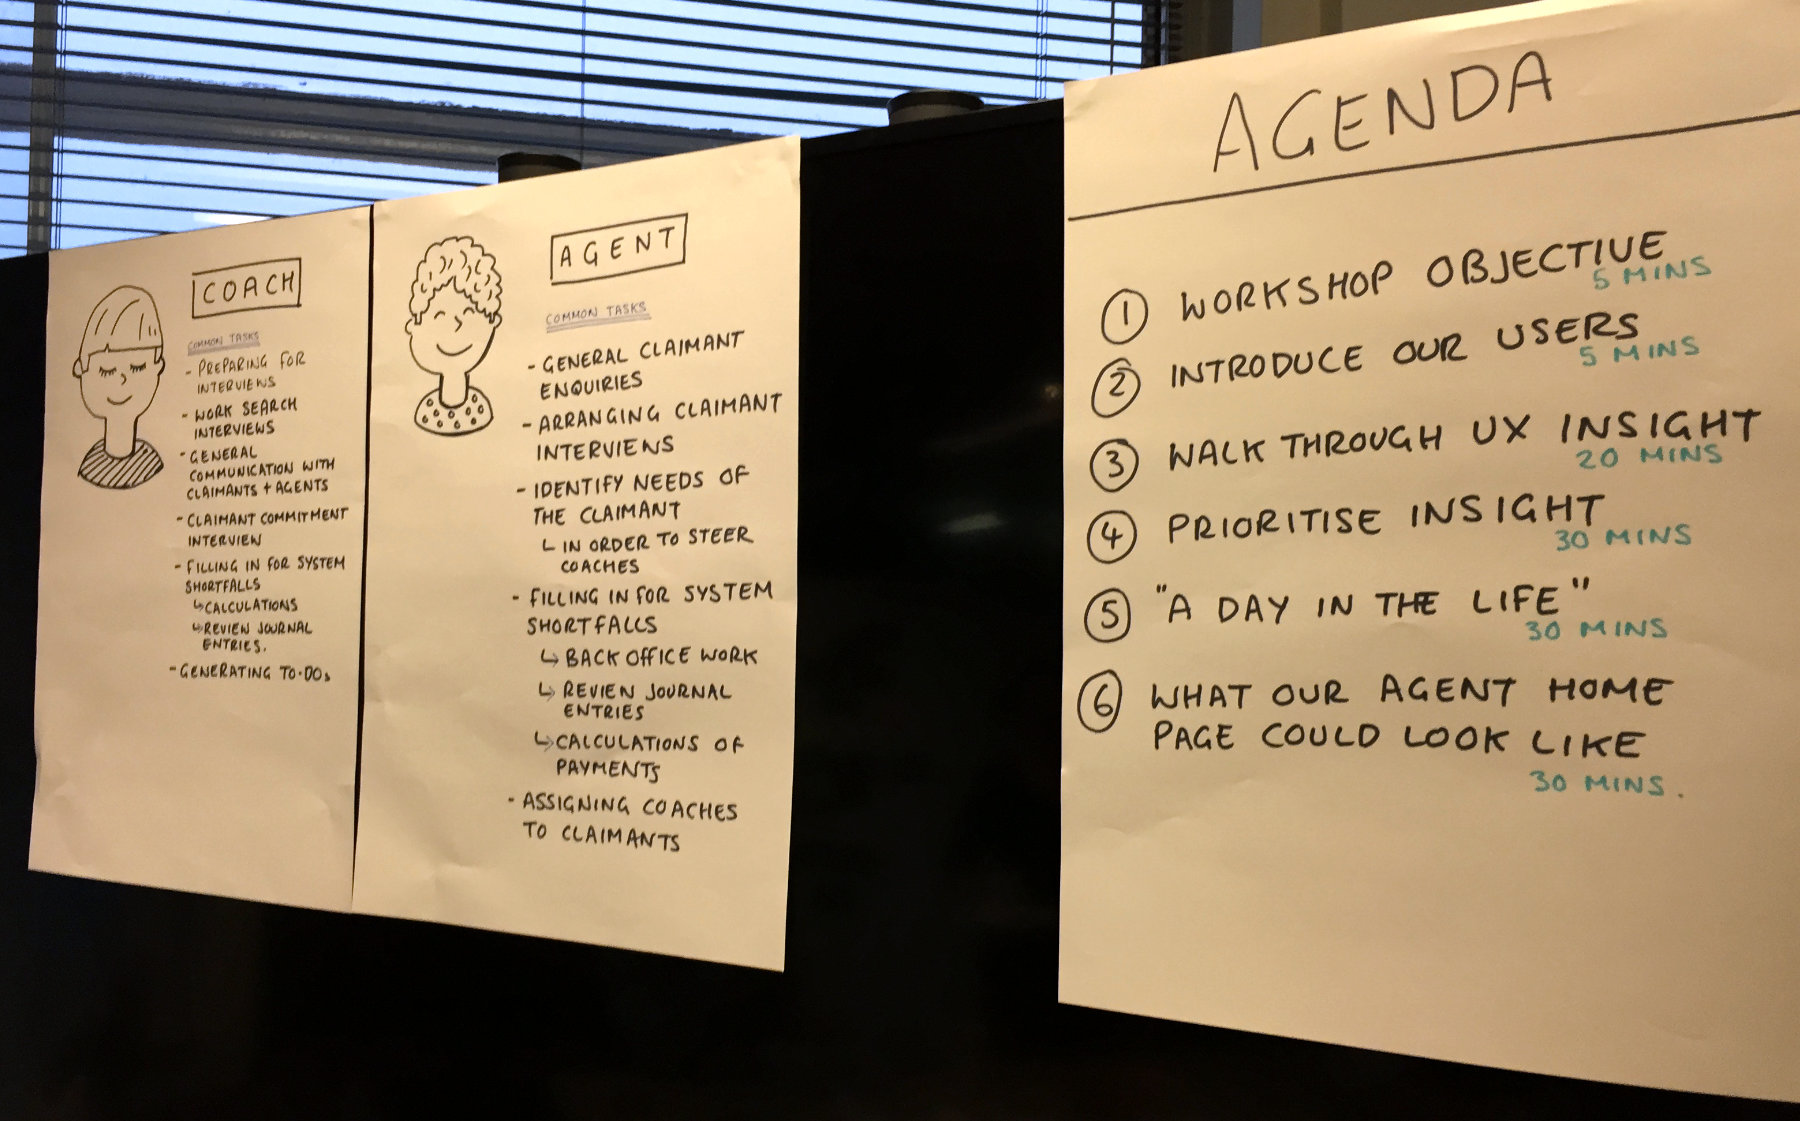 COACH
COMMON TASKS
- PREPARING FOR
INTERVIEWS
- WORK SEARCH
INTERVIEWS
- GENERAL
COMMUNICATION WITH
CLAIMANTS + AGENTS
- CLAIMANT COMMITMENT
INTERVIEW
- FILLING IN FOR SYSTEM
SHORTFALLS
↳ CALCULATIONS
↳ REVIEW JOURNAL
ENTRIES.
- GENERATING TO-DOs
AGENT
COMMON TASKS
- GENERAL CLAIMANT
ENQUIRIES
- ARRANGING CLAIMANT
INTERVIEWS
- IDENTIFY NEEDS OF
THE CLAIMANT
↳ IN ORDER TO STEER
COACHES
- FILLING IN FOR SYSTEM
SHORTFALLS
↳ BACK OFFICE WORK
↳ REVIEW JOURNAL
ENTRIES
↳ CALCULATIONS OF
PAYMENTS
- ASSIGNING COACHES
TO CLAIMANTS
AGENDA
1 WORKSHOP OBJECTIVE
5 MINS
2 INTRODUCE OUR USERS
5 MINS
3 WALK THROUGH UX INSIGHT
20 MINS
4 PRIORITISE INSIGHT
30 MINS
5 "A DAY IN THE LIFE"
30 MINS
6 WHAT OUR AGENT HOME
PAGE COULD LOOK LIKE
30 MINS.